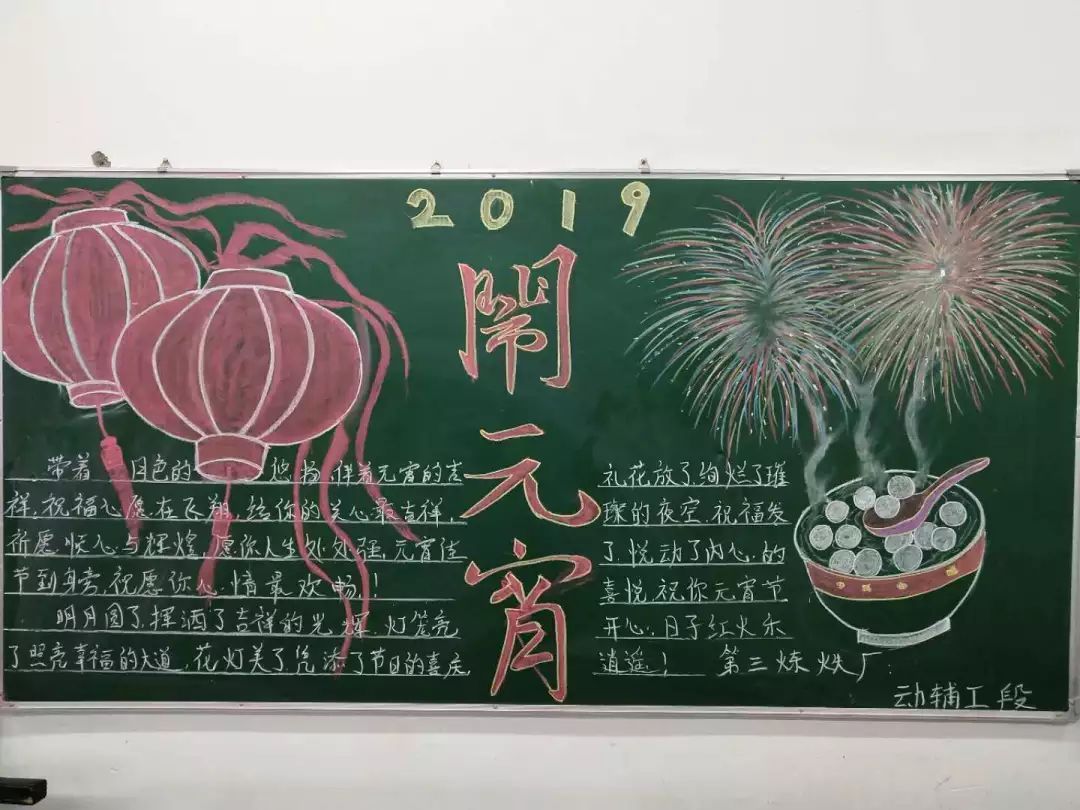 2019
鬧
元
宵
带着 月色的 悠扬,伴着元宵的吉
祥,祝福心愿在飞翔,给你的关心最吉祥,
祈愿快心与辉煌,愿你人生处处强,元宵佳
节到身旁,祝愿你心情最欢畅!
明月圆了,挥洒了吉祥的光辉,灯笼亮
了照亮幸福的大道,花灯美了,添了节日的喜庆
礼花放了,绚烂了璀
璨的夜空,祝福发
了,悦动了内心的
喜悦,祝你元宵节
开心,日子红火乐
逍遥! 第三炼铁厂
动辅工段